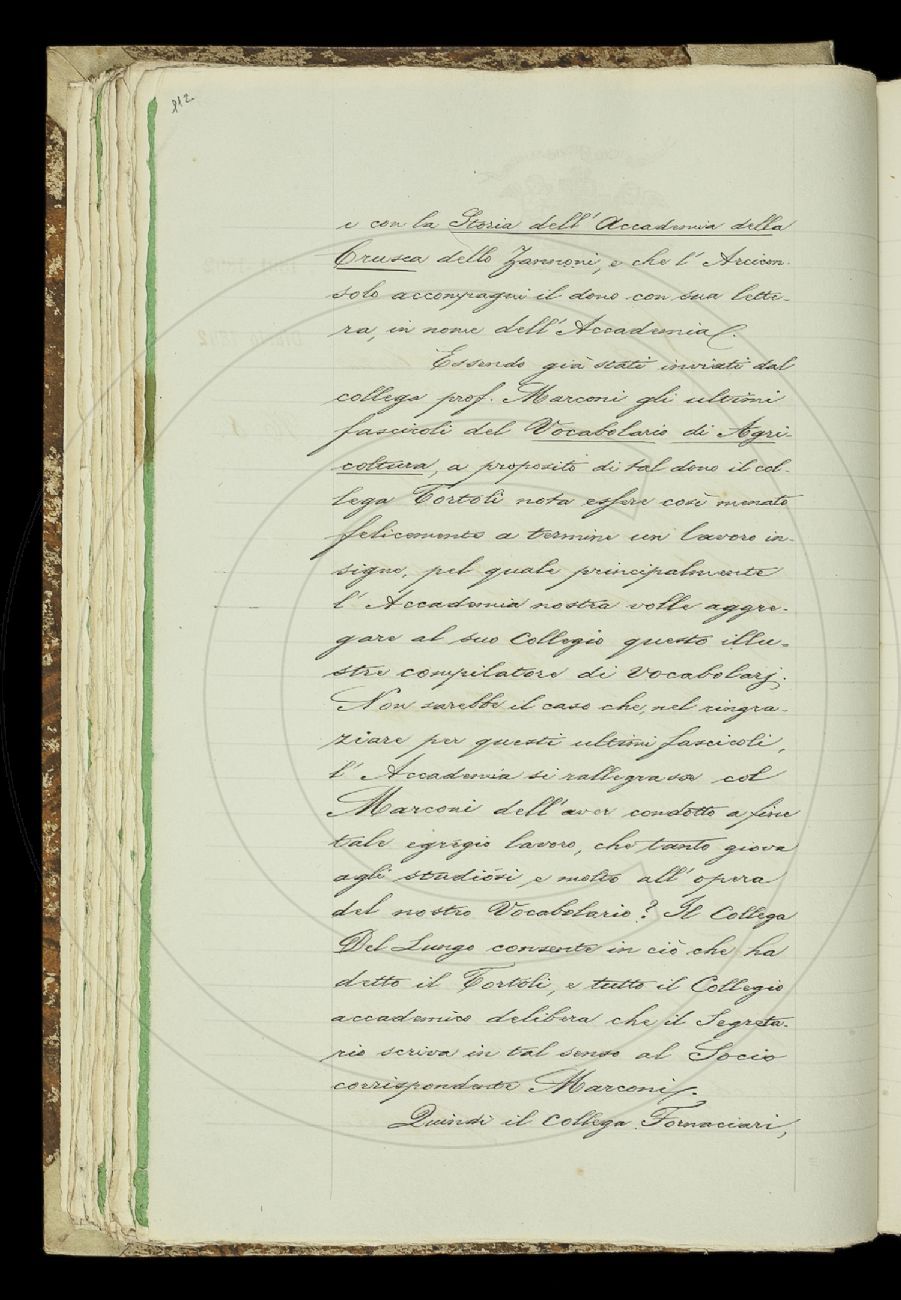 212.
e con la Storia dell'Accademia della
Crusca dello Zannoni, e che l'Arcicon-
solo accompagni il dono con sua lette-
ra, in nome dell'Accademia.
Essendo già stati inviati dal
collega prof. Marconi gli ultimi
fascicoli del Vocabolario di Agri-
coltura, a proposito di tal dono il col-
lega Tortoli nota essere così menato
felicemente a termine un lavoro in-
signe, pel quale principalmente
l'Accademia nostra volle aggre-
gare al suo Collegio questo illu-
stre compilatore di Vocabolarj.
Non sarebbe il caso che, nel ringra-
ziare per questi ultimi fascicoli,
l'Accademia si rallegrasse col
Marconi dell'aver condotto a fine
tale egregio lavoro, che tanto giova
agli studiosi e molto all'opera
del nostro Vocabolario? Il Collega
Del Lungo consente in ciò che ha
detto il Tortoli, e tutto il Collegio
accademico delibera che il Segreta-
rio scriva in tal senso al Socio
corrispondente Marconi.
Quindi il Collega Fornaciari,